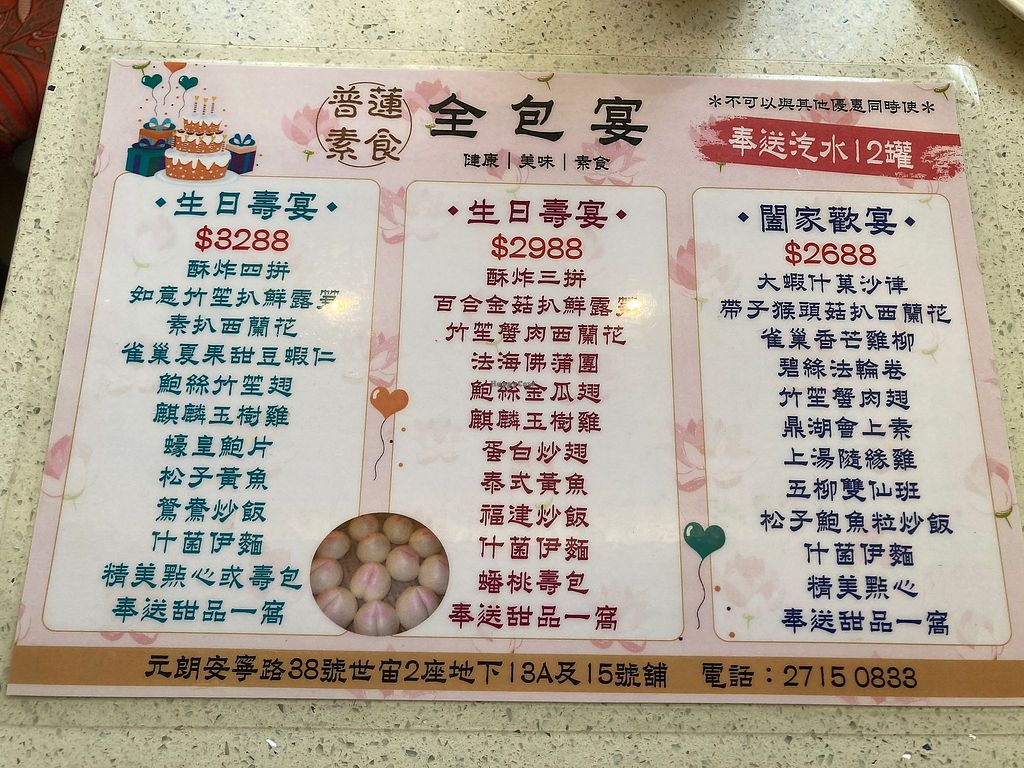 普蓮
素食
全包宴
健康|美味|素食
*不可以與其他優惠同時使*
奉送汽水12罐
•生日壽宴•
$3288
酥炸四拼
如意竹笙扒鮮露筍
素扒西蘭花
雀巢夏果甜豆蝦仁
鮑絲竹笙翅
麒麟玉樹雞
蠔皇鮑片
松子黃魚
鴛鴦炒飯
什菌伊麵
精美點心或壽包
奉送甜品一窩
•生日壽宴•
$2988
酥炸三拼
百合金菇扒鮮露筍
竹笙蟹肉西蘭花
法海佛蒲團
鮑絲金瓜翅
麒麟玉樹雞
蛋白炒翅
泰式黃魚
福建炒飯
什菌伊麵
蟠桃壽包
奉送甜品一窩
•闔家歡宴•
$2688
大蝦什菓沙律
帶子猴頭菇扒西蘭花
雀巢香芒雞柳
碧綠法輪卷
竹笙蟹肉翅
鼎湖會上素
上湯隨緣雞
五柳雙仙班
松子鮑魚粒炒飯
什菌伊麵
精美點心
奉送甜品一窩
元朗安寧路38號世宙2座地下13A及15號舖 電話：2715 0833